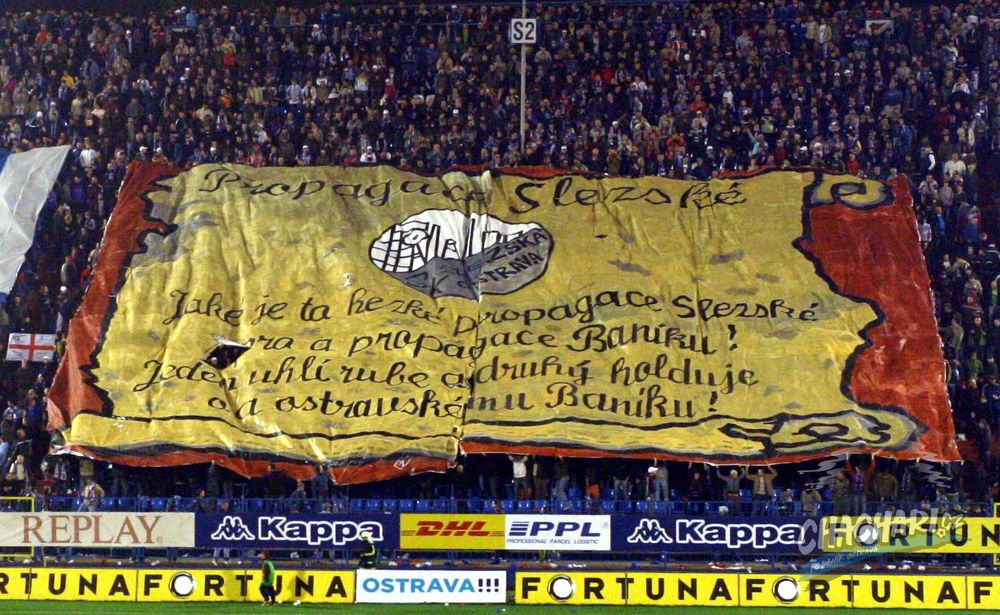 S2
Propagace Slezské
SLEZSKÁ
OSTRAVA
Jaké je ta hezké propagace Slezské
ra a propagace Baníku!
Jeden uhlí rube a druhý holduje
ostravskému Baníku!
REPLAY Kappa DHL PPL Kappa
PROFESSIONAL PARCEL LOGISTIC
FORTUNA
CHACHARI.cz
FC BANÍK OSTRAVA
FORTUNA FORTUNA OSTRAVA!!! FORTUNA FORTUNA FORTUNA